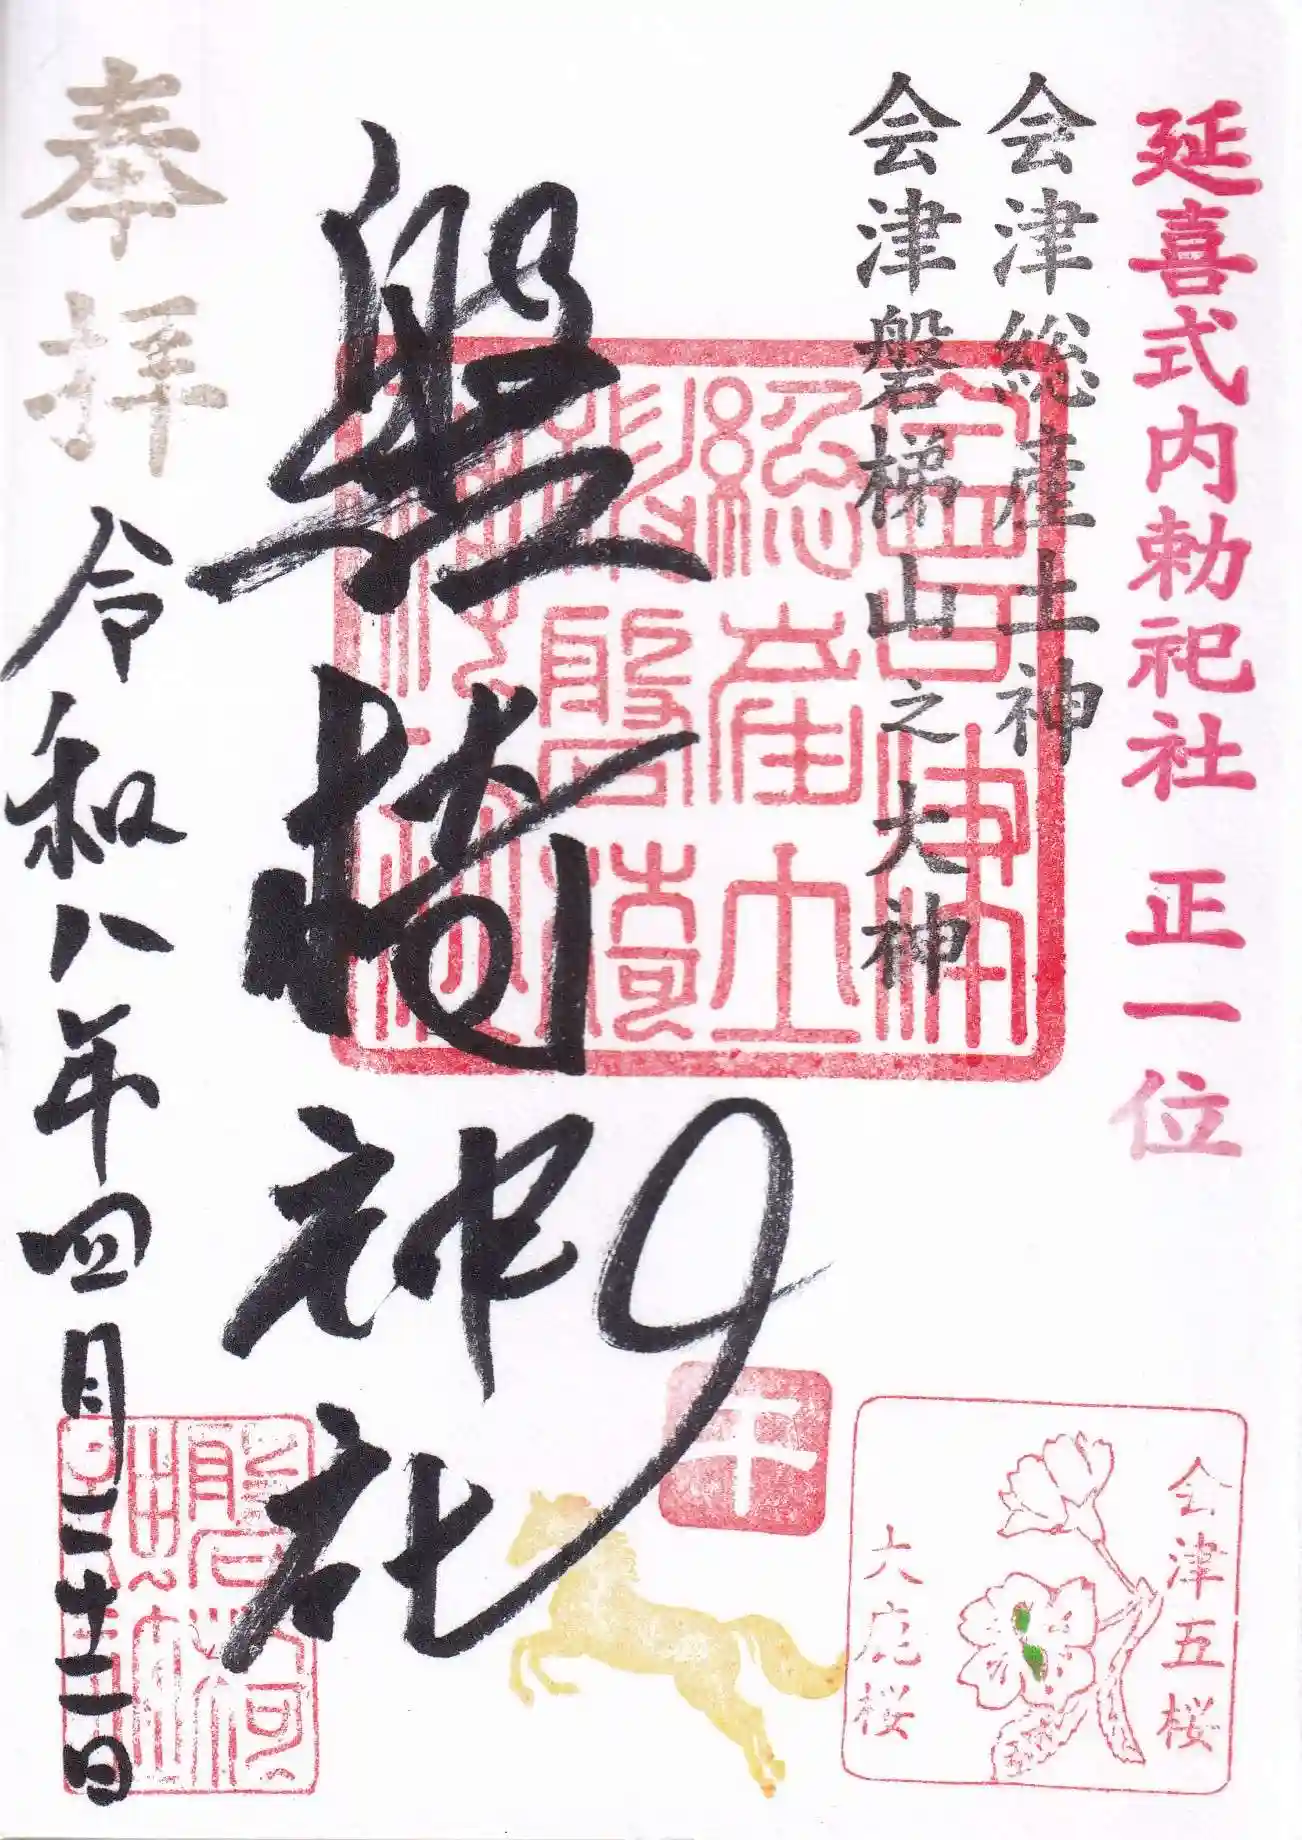 延喜式内勅祀社 正一位
会津総産土神
会津磐梯山之大神
磐椅神社
奉拝
令和八年四月二十二日
午
会津五桜
大鹿桜